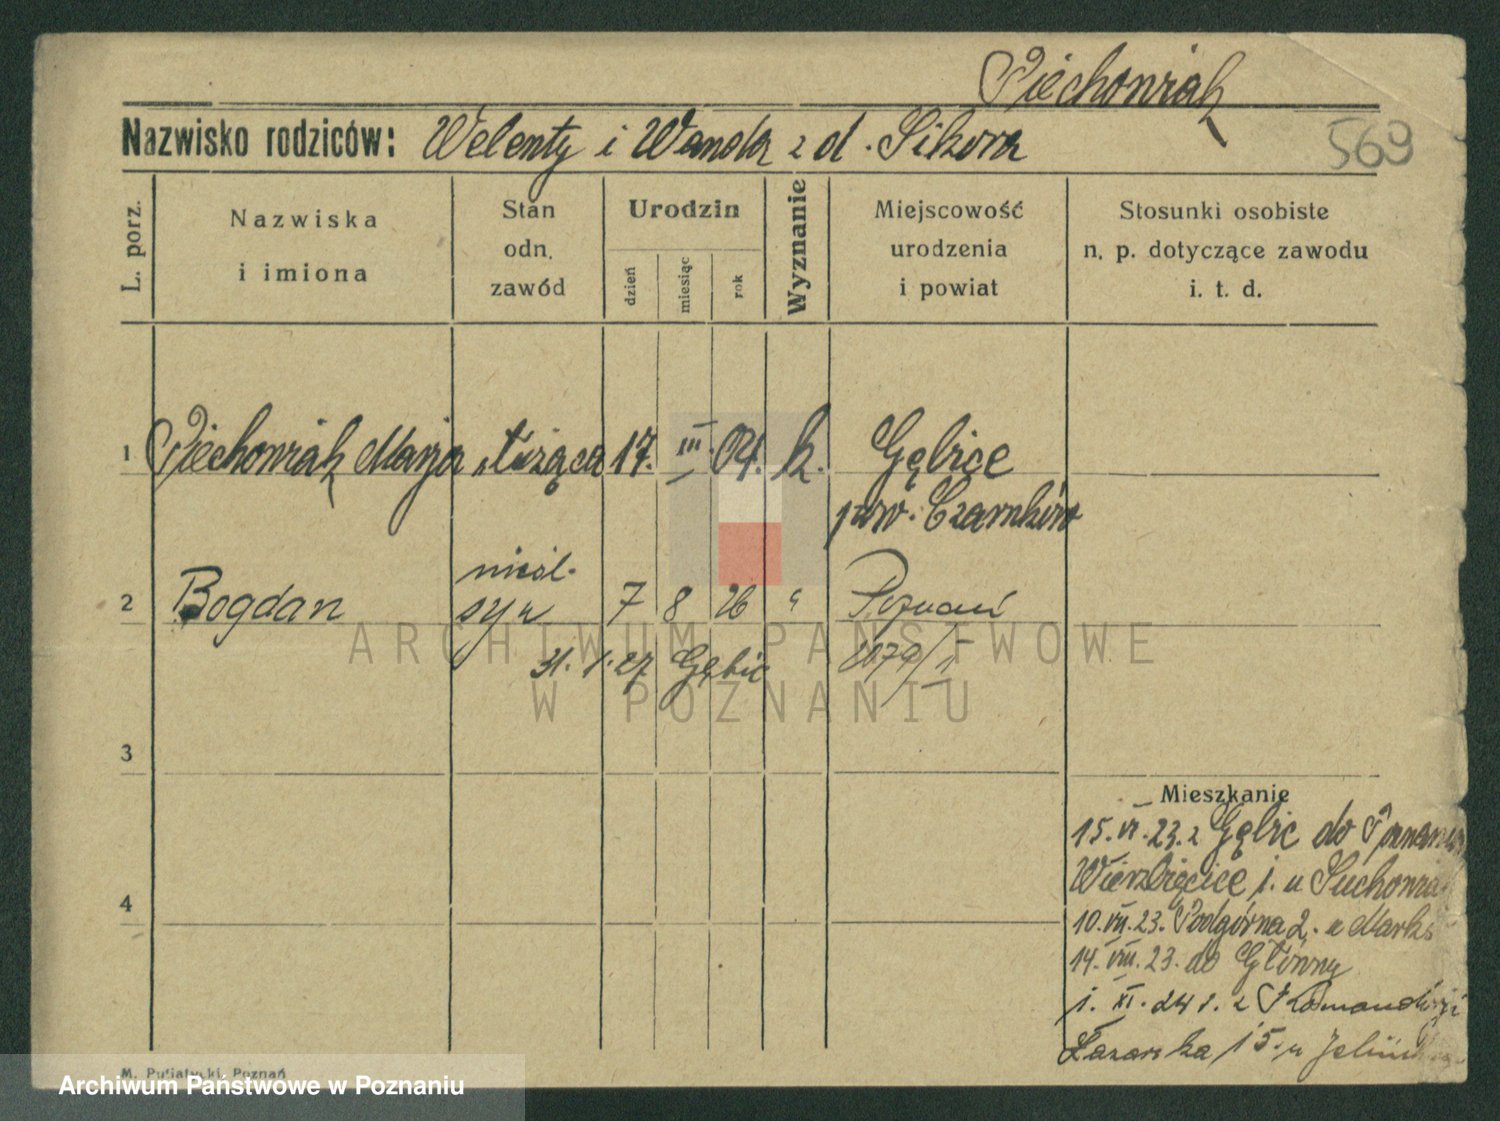 Piechowiak
Nazwisko rodziców: Walenty i Wanda z d. Sikora
569
L. porz.
Nazwiska
i imiona
Stan
odn.
zawód
Urodzin
dzień
miesiąc
rok
Wyznanie
Miejscowość
urodzenia
i powiat
Stosunki osobiste
n. p. dotyczące zawodu
i. t. d.
1 Piechowiak Marja służąca 17. III. 04. k. Gębice
pow. Czarnków
nieśl.
2 Bogdan syn 7 8 26 " Poznań
31. 1. 27 Gębic
3
Mieszkanie
15. VI. 23. z Gębic do Poznania
Wierzbięcice 1. u
4
10. VII. 23. Podgórna 2. u
14. VIII. 23. do Główny
1. XI. 24 r. z
Łazarska 15. u
M. Putiatycki, Poznań
ARCHIWUM PAŃSTWOWE
W POZNANIU
Archiwum Państwowe w Poznaniu